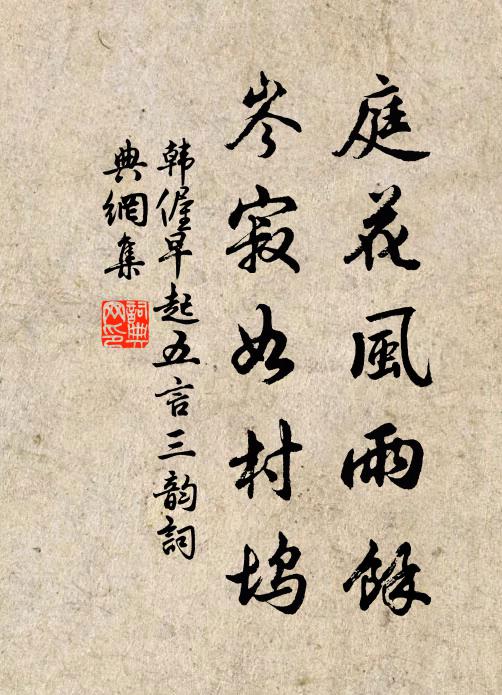 庭花風雨餘
岑寂如村塢
韩偓早起五言三韵詞
典網集
詞典网印